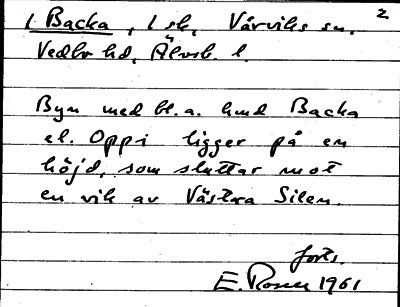 2
1 Backa, 1 sk, Vårviks sn.
Vedbo hd, Älvsb. l.
Byn med bl.a. hmd Backa
el. Oppi ligger på en
höjd, som sluttar mot
en vik av Västra Silen.
forts.
E. Rosen 1961